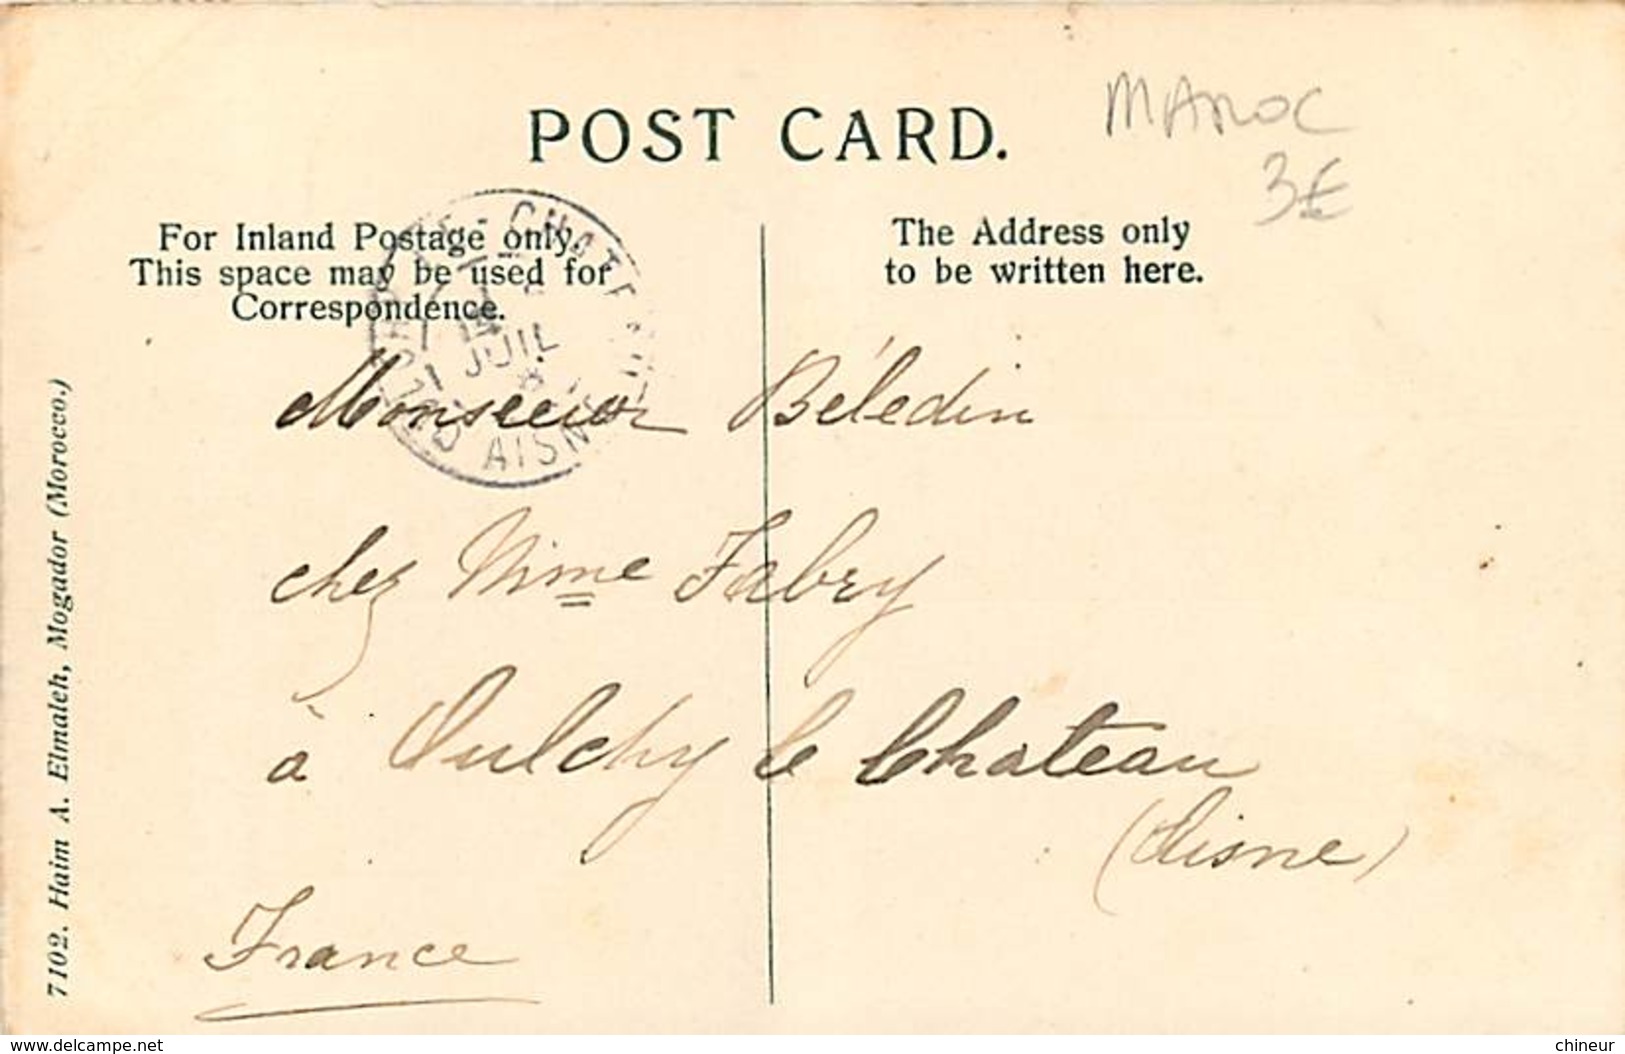 POST CARD.
MAROC
3€
For Inland Postage only.
This space may be used for
Correspondence.
The Address only
to be written here.
OULCHY-LE-CHATEAU
JUIL
AISNE
Monsieur Béledin
chez Mme Fabry
à Oulchy le Chateau
(Aisne)
France
7102. Haim A. Elmaleh, Mogador (Morocco.)
www.delcampe.net
chineur